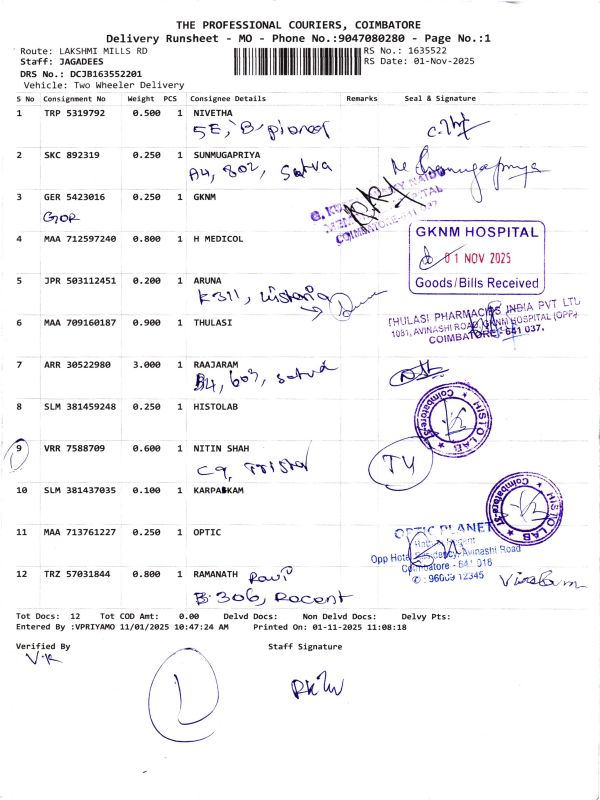 THE PROFESSIONAL COURIERS, COIMBATORE
Delivery Runsheet - MO - Phone No.:9047080280 - Page No.:1
Route: LAKSHMI MILLS RD
RS No.: 1635522
Staff: JAGADEES
RS Date: 01-Nov-2025
DRS No.: DCJB163552201
Vehicle: Two Wheeler Delivery
S No Consignment No Weight PCS Consignee Details Remarks Seal & Signature
1 TRP 5319792 0.500 1 NIVETHA
5E, B,
2 SKC 892319 0.250 1 SUNMUGAPRIYA
A4, 802, Satva
3 GER 5423016 0.250 1 GKNM
COIMBATORE-641 037
4 MAA 712597240 0.800 1 H MEDICOL
GKNM HOSPITAL
01 NOV 2025
Goods/Bills Received
5 JPR 503112451 0.200 1 ARUNA
K311,
6 MAA 709160187 0.900 1 THULASI
THULASI PHARMACIES INDIA PVT LTD
1081, AVINASHI ROAD, GKNM HOSPITAL (OPP)
COIMBATORE- 641 037.
7 ARR 30522980 3.000 1 RAAJARAM
B4, 603, Satva
8 SLM 381459248 0.250 1 HISTOLAB
HISTO LAB
9 VRR 7588709 0.600 1 NITIN SHAH
C9,
10 SLM 381437035 0.100 1 KARPAKAM
HISTO LAB
11 MAA 713761227 0.250 1 OPTIC
OPTIC PLANET
Opp Hotel Residency, Avinashi Road
Coimbatore - 641 018
12 TRZ 57031844 0.800 1 RAMANATH Ravi
B-306,
Tot Docs: 12 Tot COD Amt: 0.00 Delvd Docs: Non Delvd Docs: Delvy Pts:
Entered By :VPRIYAMO 11/01/2025 10:47:24 AM Printed On: 01-11-2025 11:08:18
Verified By Staff Signature
V.K